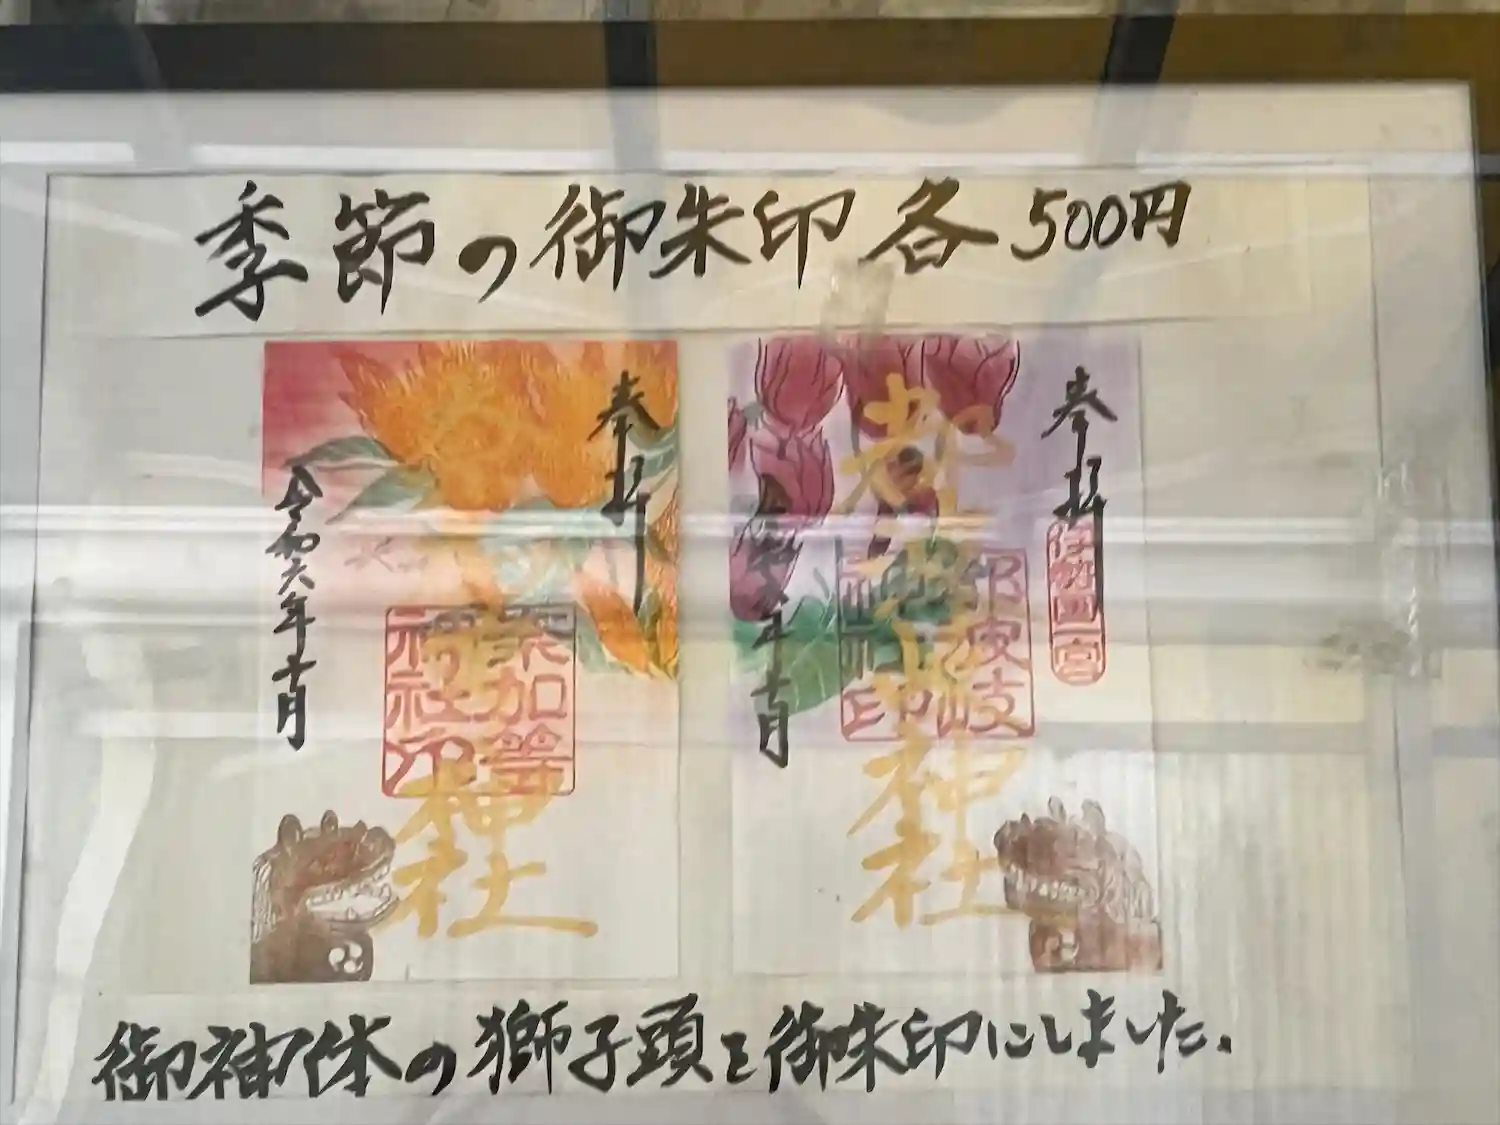 季節の御朱印各500円
奉拝
令和六年十月
粟加等
神社印
神社
奉拝
伊勢四宮
都波岐
神社印
神社
御神体の獅子頭を御朱印にしました。